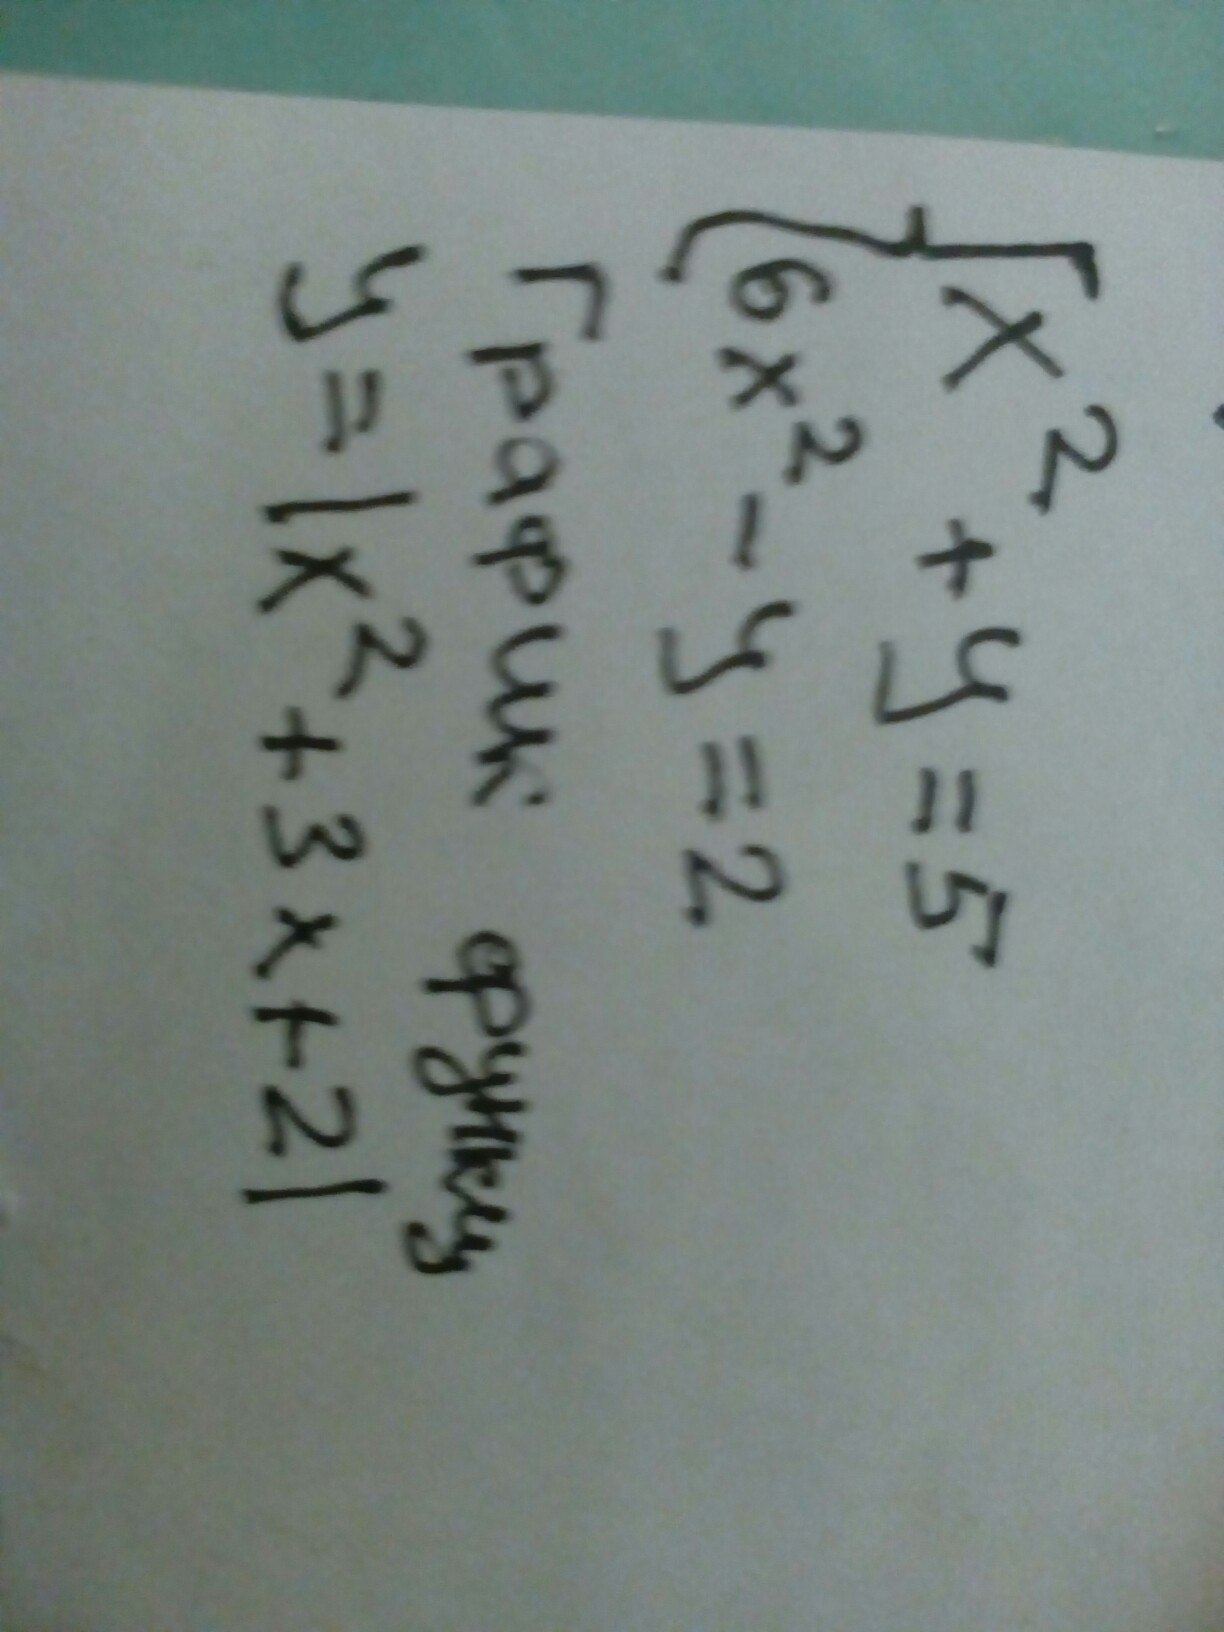 {x² + y = 5
6x² - y = 2
График функц
y = |x² + 3x + 2|